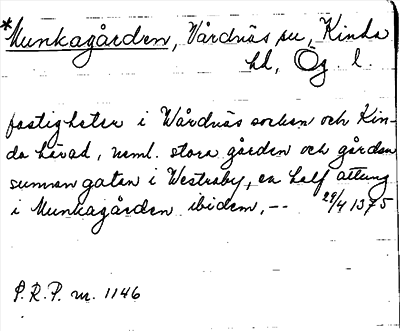 *Munkagården, Vårdnäs su, Kinda
hd, Ög. l.
fastigheter i Wårdnäs socken och Kin-
da härad, neml. stora gården och gården
sunnan gatan i Westraby, en half attung
i Munkagården ibidem, -- 29/4 1375
P.R.P. nr. 1146